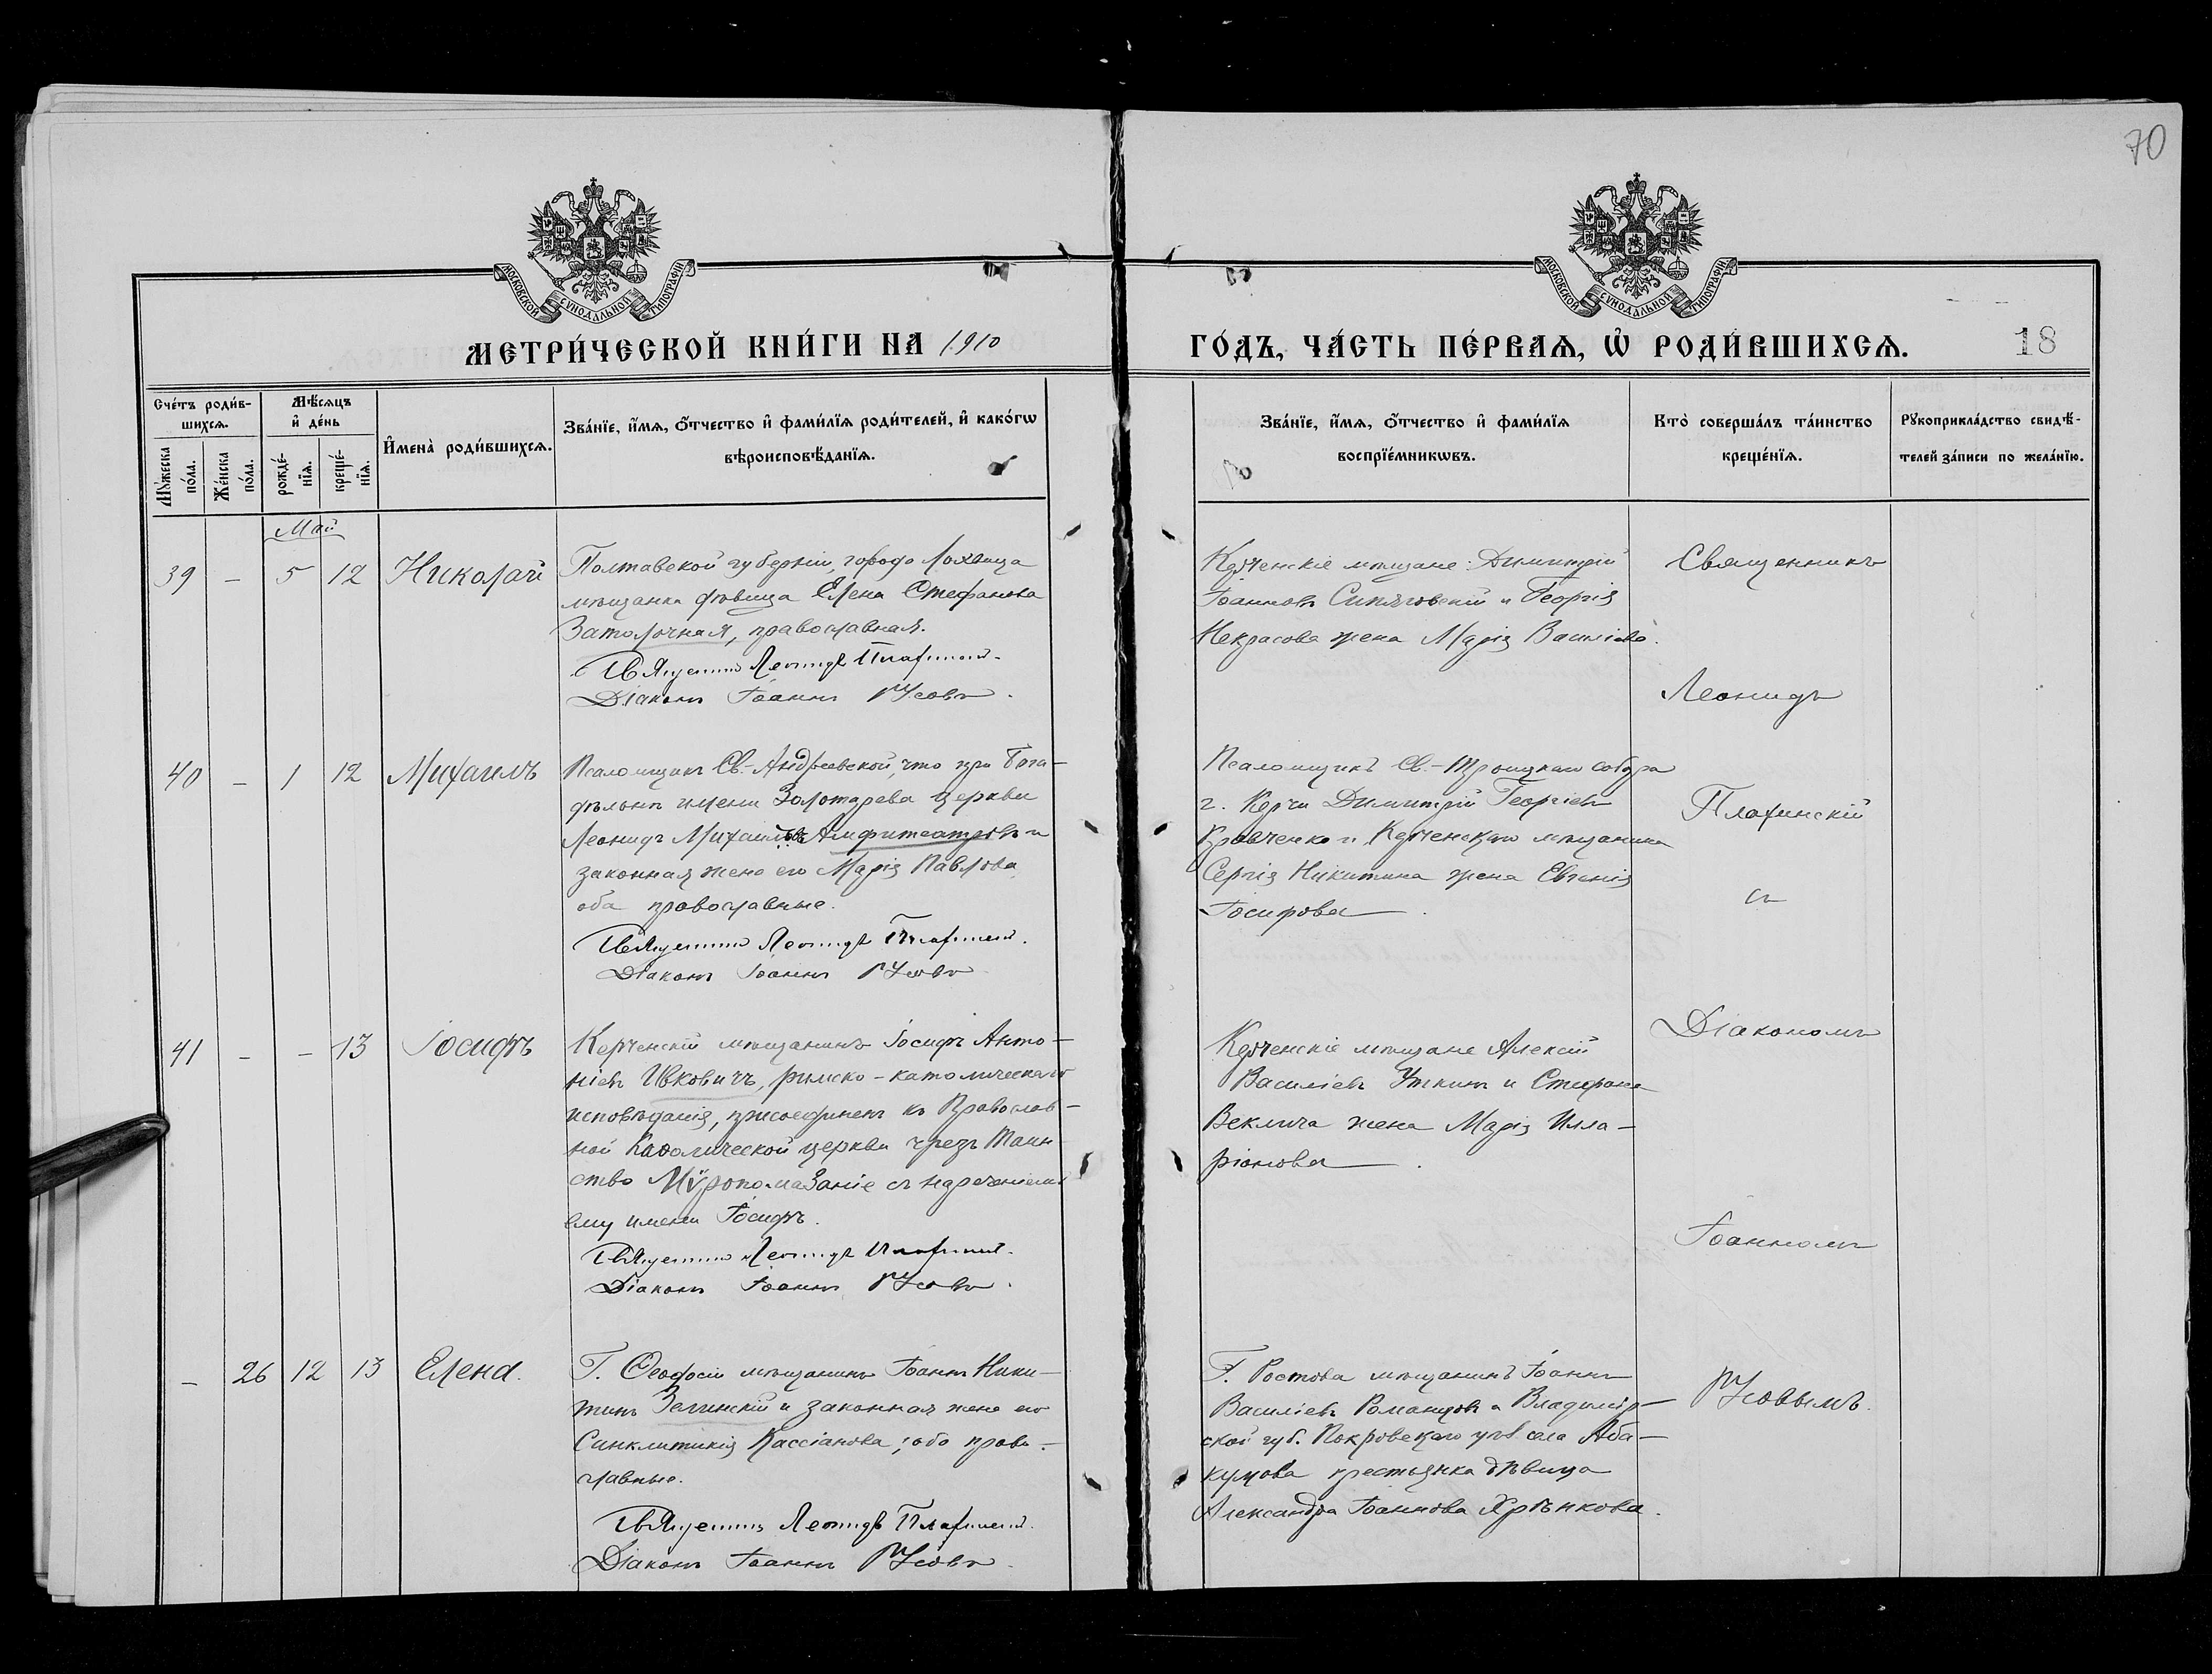 70
МОСКОВСКОЙ СУНОДАЛЬНОЙ ТИПОГРАФІИ
МОСКОВСКОЙ СУНОДАЛЬНОЙ ТИПОГРАФІИ
МЕТРИ́ЧЕСКОЙ КНИ́ГИ НА 1910
ГО́ДЪ, ЧА́СТЬ ПЕ́РВАѦ, Ѡ҆ РОДИ́ВШИХСѦ.
18
Сче́тъ роди́в-
шихсѧ.
Мꙋ́жеска по́ла.
Же́нска по́ла.
Мѣ́сѧцъ
и҆ де́нь
рожде́-
нїѧ.
креще́-
нїѧ.
И҆мена̀ роди́вшихсѧ.
Зва́нїе, и҆́мѧ, ѻ҆́тчество и҆ фами́лїѧ роди́телей, и҆ како́гѡ
вѣроисповѣ́данїѧ.
Зва́нїе, и҆́мѧ, ѻ҆́тчество и҆ фами́лїѧ
воспрїе́мникѡвъ.
Кто̀ соверша́лъ та́инство
креще́нїѧ.
Рꙋкоприкла́дство свидѣ́-
телей за́писи по жела́нїю.
Май
39 - 5 12 Николай
Полтавской губерніи, города Лохвица
мѣщанка дѣвица Елена Стефанова
Затолочная, православная.
Священникъ Леонидъ Плахинскій.
Діаконъ Іоаннъ Усовъ.
Керченскіе мѣщане: Димитрій
Іоанновъ Сипяговскій и Георгія
Некрасова жена Марія Василіева.
40 - 1 12 Михаилъ
Псаломщикъ Св.-Андреевской, что при Бога-
дѣльнѣ имени Золотарева церкви
Леонидъ Михаиловъ Амфитеатровъ и
законная жена его Марія Павлова
оба православные.
Священникъ Леонидъ Плахинскій.
Діаконъ Іоаннъ Усовъ
Псаломщикъ Св.-Троицкаго собора
г. Керчи Димитрій Георгіевъ
Кравченко и Керченскаго мѣщанина
Сергія Никитина жена Евгенія
Іосифова.
41 - - 13 Іосифъ
Керченскій мѣщанинъ Іосифъ Анто-
ніевъ Ивковичъ, римско-католическаго
исповѣданія, присоединенъ къ Православ-
ной Каѳолической церкви чрезъ Таин
ство Мѵропомазаніе съ нареченіемъ
ему имени Іосифъ.
Священникъ Леонидъ Плахинскій.
Діаконъ Іоаннъ Усовъ.
Керченскіе мѣщане Алексій
Василіевъ Уткинъ и Стефана
Веклича жена Марія Илла-
ріонова.
- 26 12 13 Елена.
Г. Ѳеодосіи мѣщанинъ Іоаннъ Ники-
тинъ Зелинскій и законная жена его
Синклитикія Кассіанова; оба право-
славные.
Священникъ Леонидъ Плахинскій.
Діаконъ Іоаннъ Усовъ.
Г. Ростова мѣщанинъ Іоаннъ
Василіевъ Романцовъ и Владимір-
ской губ. Покровскаго уѣз. села Аба-
кумова крестьянка дѣвица
Александра Іоаннова Хрѣнкова.
Священникъ
Леонидъ
Плахинскій
съ
Діакономъ
Іоанномъ
Усовымъ.